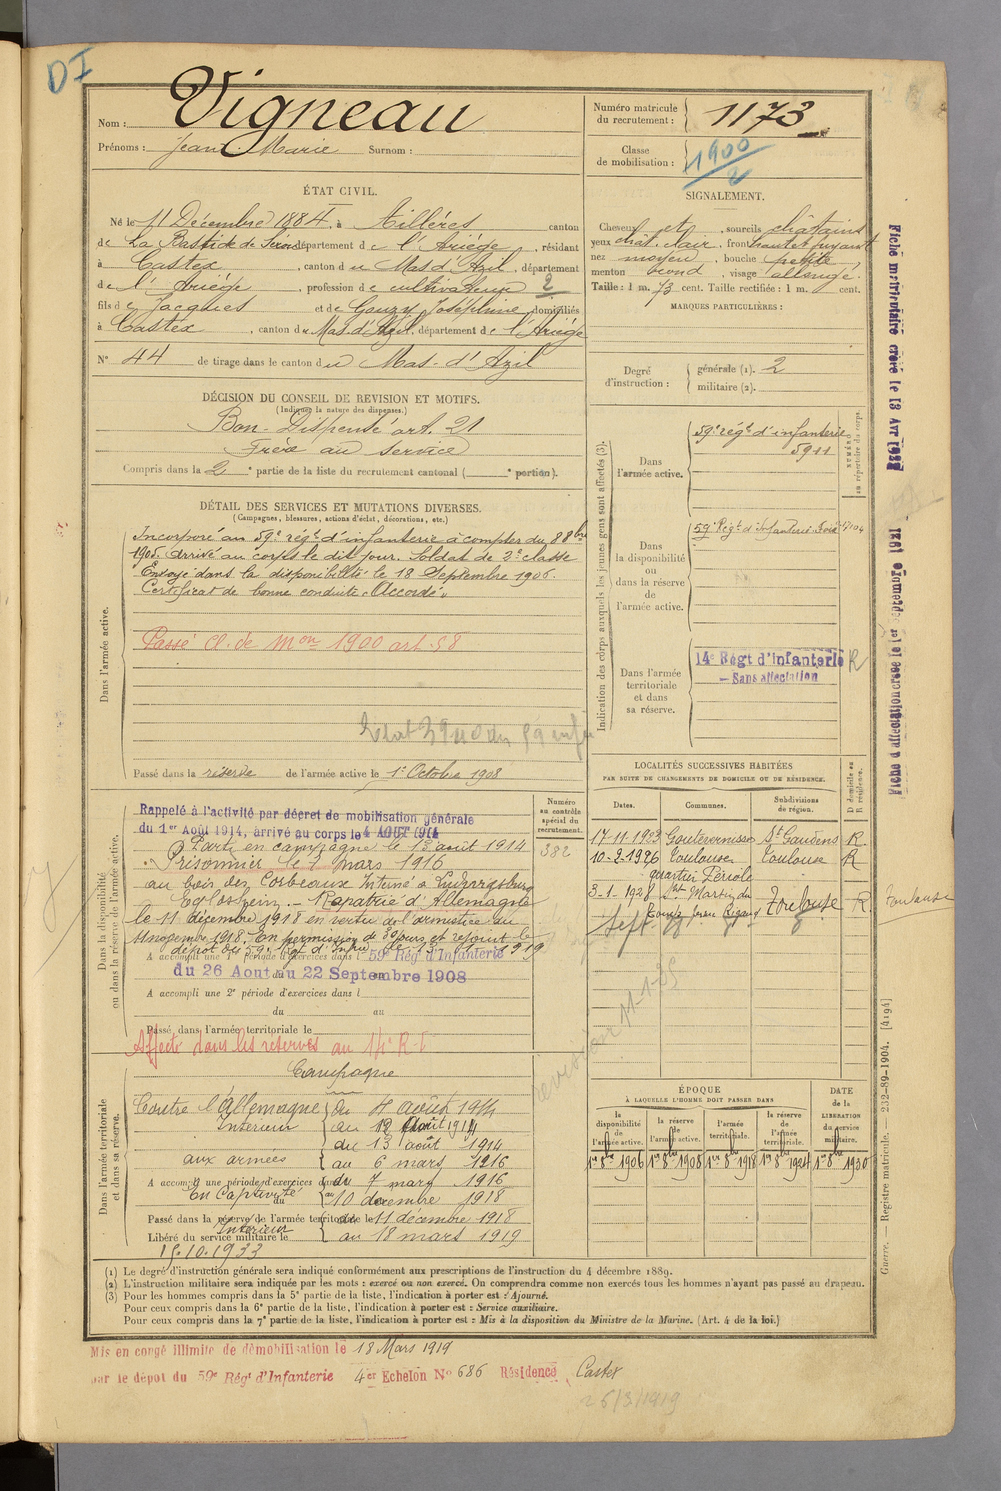 DI
Nom : Vigneau
Prénoms : Jean Marie Surnom :
Numéro matricule du recrutement : 1173
Classe de mobilisation : 1900/2
ÉTAT CIVIL.
Né le 11 Décembre 1884, à Aillères, canton
de La Bastide de Sérou, département de l'Ariège, résidant
à Castex, canton du Mas d'Azil, département
de l'Ariège, profession de cultivateur 2
fils de Jacques et de Gouzy Joséphine, domiciliés
à Castex, canton du Mas d'Azil, département de l'Ariège
N° 44 de tirage dans le canton du Mas-d'Azil
SIGNALEMENT.
Cheveux et sourcils châtains
yeux chât. clair, front haut et fuyant
nez moyen, bouche petite
menton rond, visage allongé.
Taille : 1 m. 73 cent. Taille rectifiée : 1 m. cent.
MARQUES PARTICULIÈRES :
Degré d'instruction : générale (1). 2
militaire (2).
DÉCISION DU CONSEIL DE REVISION ET MOTIFS.
(Indiquer la nature des dispenses.)
Bon - Dispensé art. 21
Frère au service
Compris dans la 2e partie de la liste du recrutement cantonal ( e portion).
DÉTAIL DES SERVICES ET MUTATIONS DIVERSES.
(Campagnes, blessures, actions d'éclat, décorations, etc.)
Dans l'armée active.
Incorporé au 59e régt d'infanterie à compter du 8 8bre
1905. Arrivé au corps le dit jour. Soldat de 2e classe
Envoyé dans la disponibilité le 18 Septembre 1906.
Certificat de bonne conduite "Accordé"
Passé cl. de Mon 1900 art. 58
Passé dans la réserve de l'armée active le 1er Octobre 1908
Indication des corps auxquels les jeunes gens sont affectés (3).
NUMÉRO au répertoire du corps.
Dans l'armée active.
59e régt d'infanterie
5911
Dans la disponibilité ou dans la réserve de l'armée active.
59e Régt d'Infanterie Foix
Dans l'armée territoriale et dans sa réserve.
14e Régt d'Infanterie R
— Sans affectation
Dans la disponibilité ou dans la réserve de l'armée active.
Rappelé à l'activité par décret de mobilisation générale
du 1er Août 1914, arrivé au corps le 4 AOUT 1914
Parti en campagne le 13 août 1914
Prisonnier le 7 mars 1916
au bois des Corbeaux Interné à Ludwigsburg
Eglosheim. — Rapatrié d'Allemagne
le 11 décembre 1918 en vertu de l'armistice du
11 novembre 1918. En permission de 30 jours et rejoint le
dépôt du 59e Régt d'Infrie le 1919
A accompli une 1re période d'exercices dans l 59e Rég. d'Infanterie
du 26 Aout au 22 Septembre 1908
A accompli une 2e période d'exercices dans l
du au
Passé dans l'armée territoriale le
Affecté dans les réserves au 14e R.I
Numéro au contrôle spécial du recrutement.
382
LOCALITÉS SUCCESSIVES HABITÉES
PAR SUITE DE CHANGEMENTS DE DOMICILE OU DE RÉSIDENCE.
Dates. Communes. Subdivisions de région. D domicile ou R résidence.
17-11-1923 Goutevernisse St Gaudens R.
10-2-1926 Toulouse Toulouse R
quartier Périole
3-1-1928 St Martin du
Touch Toulouse R. Toulouse
Revision 11-1-35
Dans l'armée territoriale et dans sa réserve.
Campagne
Contre l'Allemagne du 4 août 1914
Intérieur au 12 août 1914
du 13 août 1914
aux armées au 6 mars 1916
A accompli une période d'exercices dans l du 7 mars 1916
En Captivité au 10 décembre 1918
Passé dans la réserve de l'armée territoriale le du 11 décembre 1918
Intérieur
Libéré du service militaire le au 18 mars 1919
15.10.1933
ÉPOQUE
À LAQUELLE L'HOMME DOIT PASSER DANS
la disponibilité de l'armée active. la réserve de l'armée active. l'armée territoriale. la réserve de l'armée territoriale. DATE de la LIBÉRATION du service militaire.
1er 8bre 1906 1er 8bre 1908 1er 8bre 1918 1er 8bre 1924 1er 8bre 1930
(1) Le degré d'instruction générale sera indiqué conformément aux prescriptions de l'instruction du 4 décembre 1889.
(2) L'instruction militaire sera indiquée par les mots : exercé ou non exercé. On comprendra comme non exercés tous les hommes n'ayant pas passé au drapeau.
(3) Pour les hommes compris dans la 5e partie de la liste, l'indication à porter est : Ajourné.
Pour ceux compris dans la 6e partie de la liste, l'indication à porter est : Service auxiliaire.
Pour ceux compris dans la 7e partie de la liste, l'indication à porter est : Mis à la disposition du Ministre de la Marine. (Art. 4 de la loi.)
Mis en congé illimité de démobilisation le 18 Mars 1919
par le dépôt du 59e Régt d'Infanterie 4er Echelon No 686 Résidence Castex
26/3/1919
Fiche matriculaire créée le 18 Avr 1928
Guerre. — Registre matricule. — 232-89-1904. [4194]